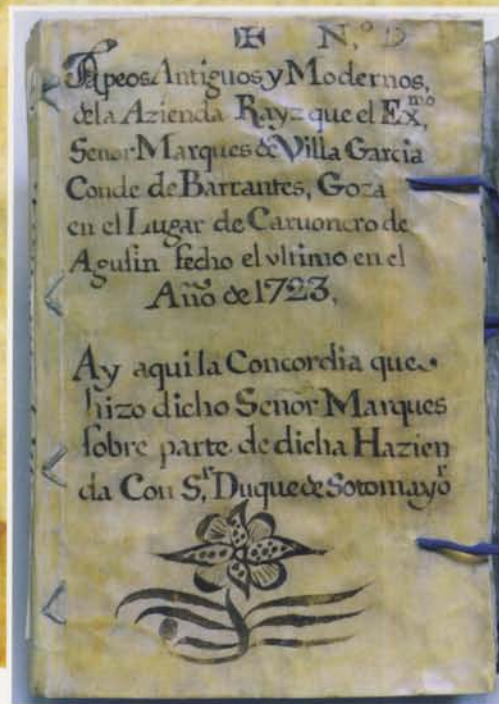 N.º 9
Apeos Antiguos y Modernos,
de la Azienda Rayz que el Ex.mo
Senor Marques de Villa Garcia
Conde de Barrantes, Goza
en el Lugar de Caruonero de
Agusin fecho el vltimo en el
Año de 1723,
Ay aqui la Concordia que
hizo dicho Senor Marques
sobre parte de dicha Hazien
da Con S.r Duque de Sotomayor